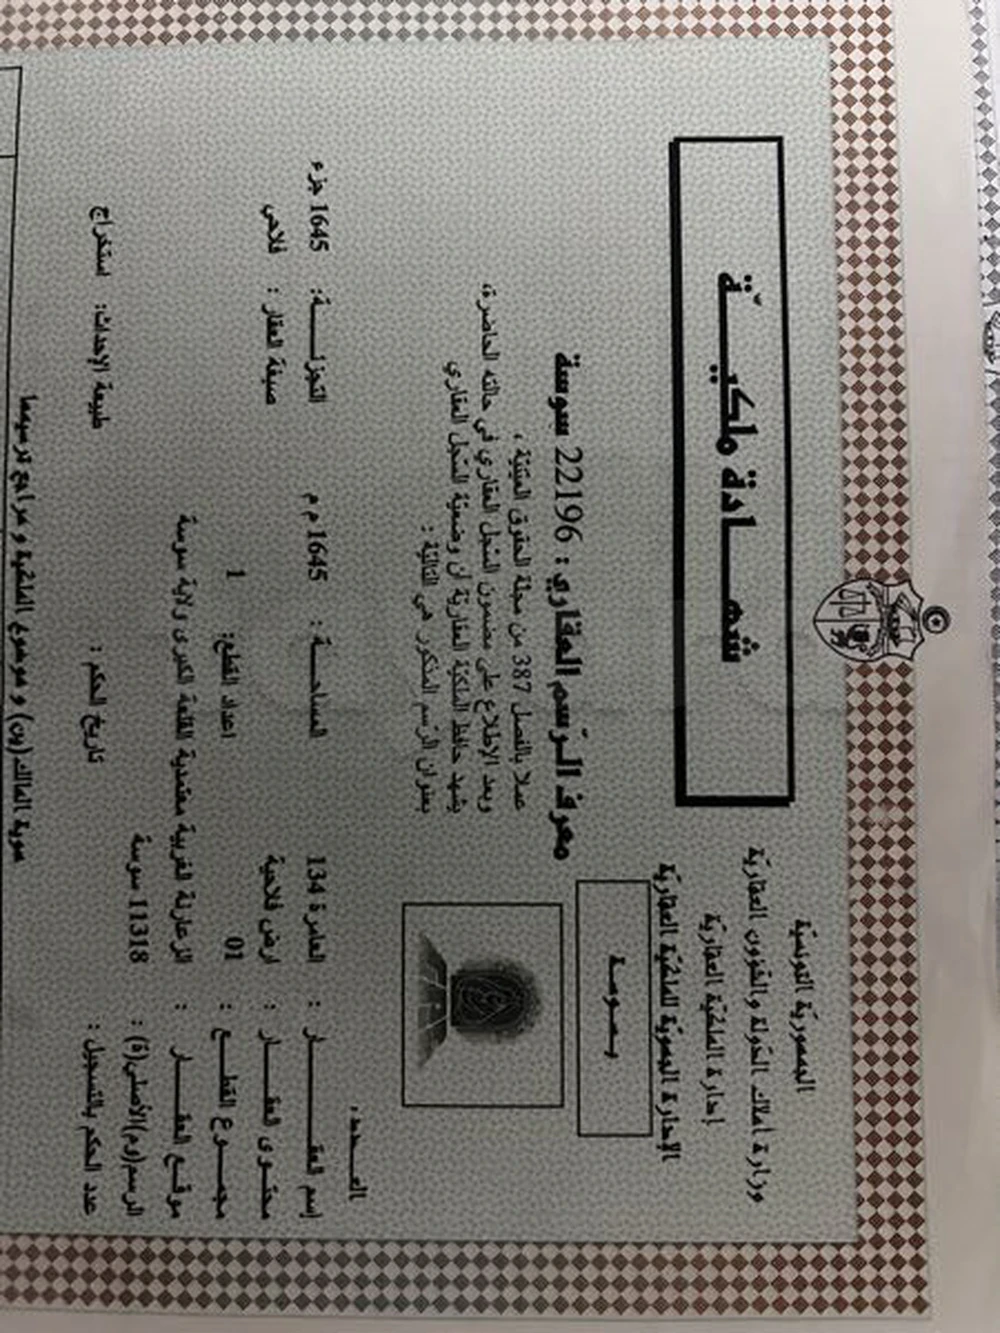 الجمهوريّة التونسيّة
وزارة أملاك الدّولة والشّؤون العقاريّة
إدارة الملكيّة العقاريّة
الإدارة الجهويّة للملكيّة العقاريّة
بسوسة
شهـــادة ملكيـــّة
معرف الرّسم العقاري : 22196 سوسة
عملا بالفصل 387 من مجلة الحقوق العينيّة ،
وبعد الإطلاع على مضمون السّجل العقاري في حالته الحاضرة،
يشهد حافظ الملكيّة العقاريّة أن وضعيّة السّجل العقاري
بعنوان الرّسم المذكور هي التّاليّة :
العــــدد
إسم العقـــــــار : العامرة 134 المساحـــة : 1645 م م التجزئـــــة: 1645 جزء
محتوى العقــــار : ارض فلاحية صبغة العقار : فلاحي
مجمـــوع القطـــع : 01 اعداد القطع: 1
موقــع العقـــــار : الزعارنة الغربية معتمدية القلعة الكبرى ولاية سوسة
الرسم(وم)الأصلي(ة) : 11318 سوسة
عدد الحكم بالتسجيل : تاريخ الحكم : طبيعة الإحداث: استخراج
هوية المالك(ين) و موضوع الملكية و مراجع ترسيمها